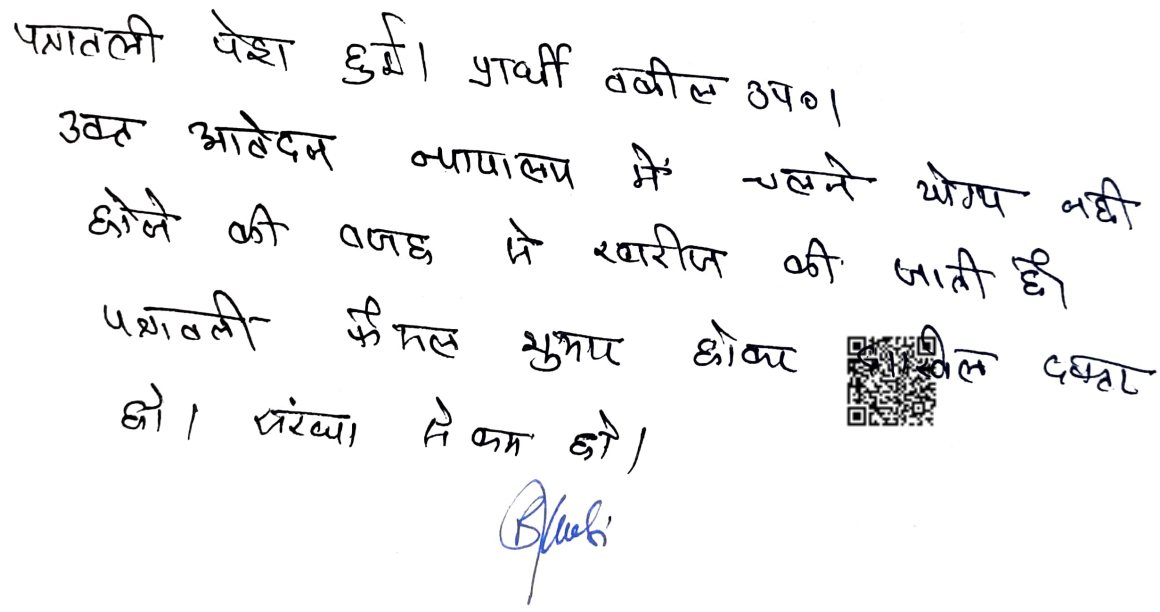 पत्रावली पेश हुई। प्रार्थी वकील उप०।
उक्त आवेदन न्यायालय में चलने योग्य नही
होने की वजह से खारीज की जाती है।
पत्रावली फैसल शुमार होकर दाखिल दफ्तर
हो। संख्या से कम हो।